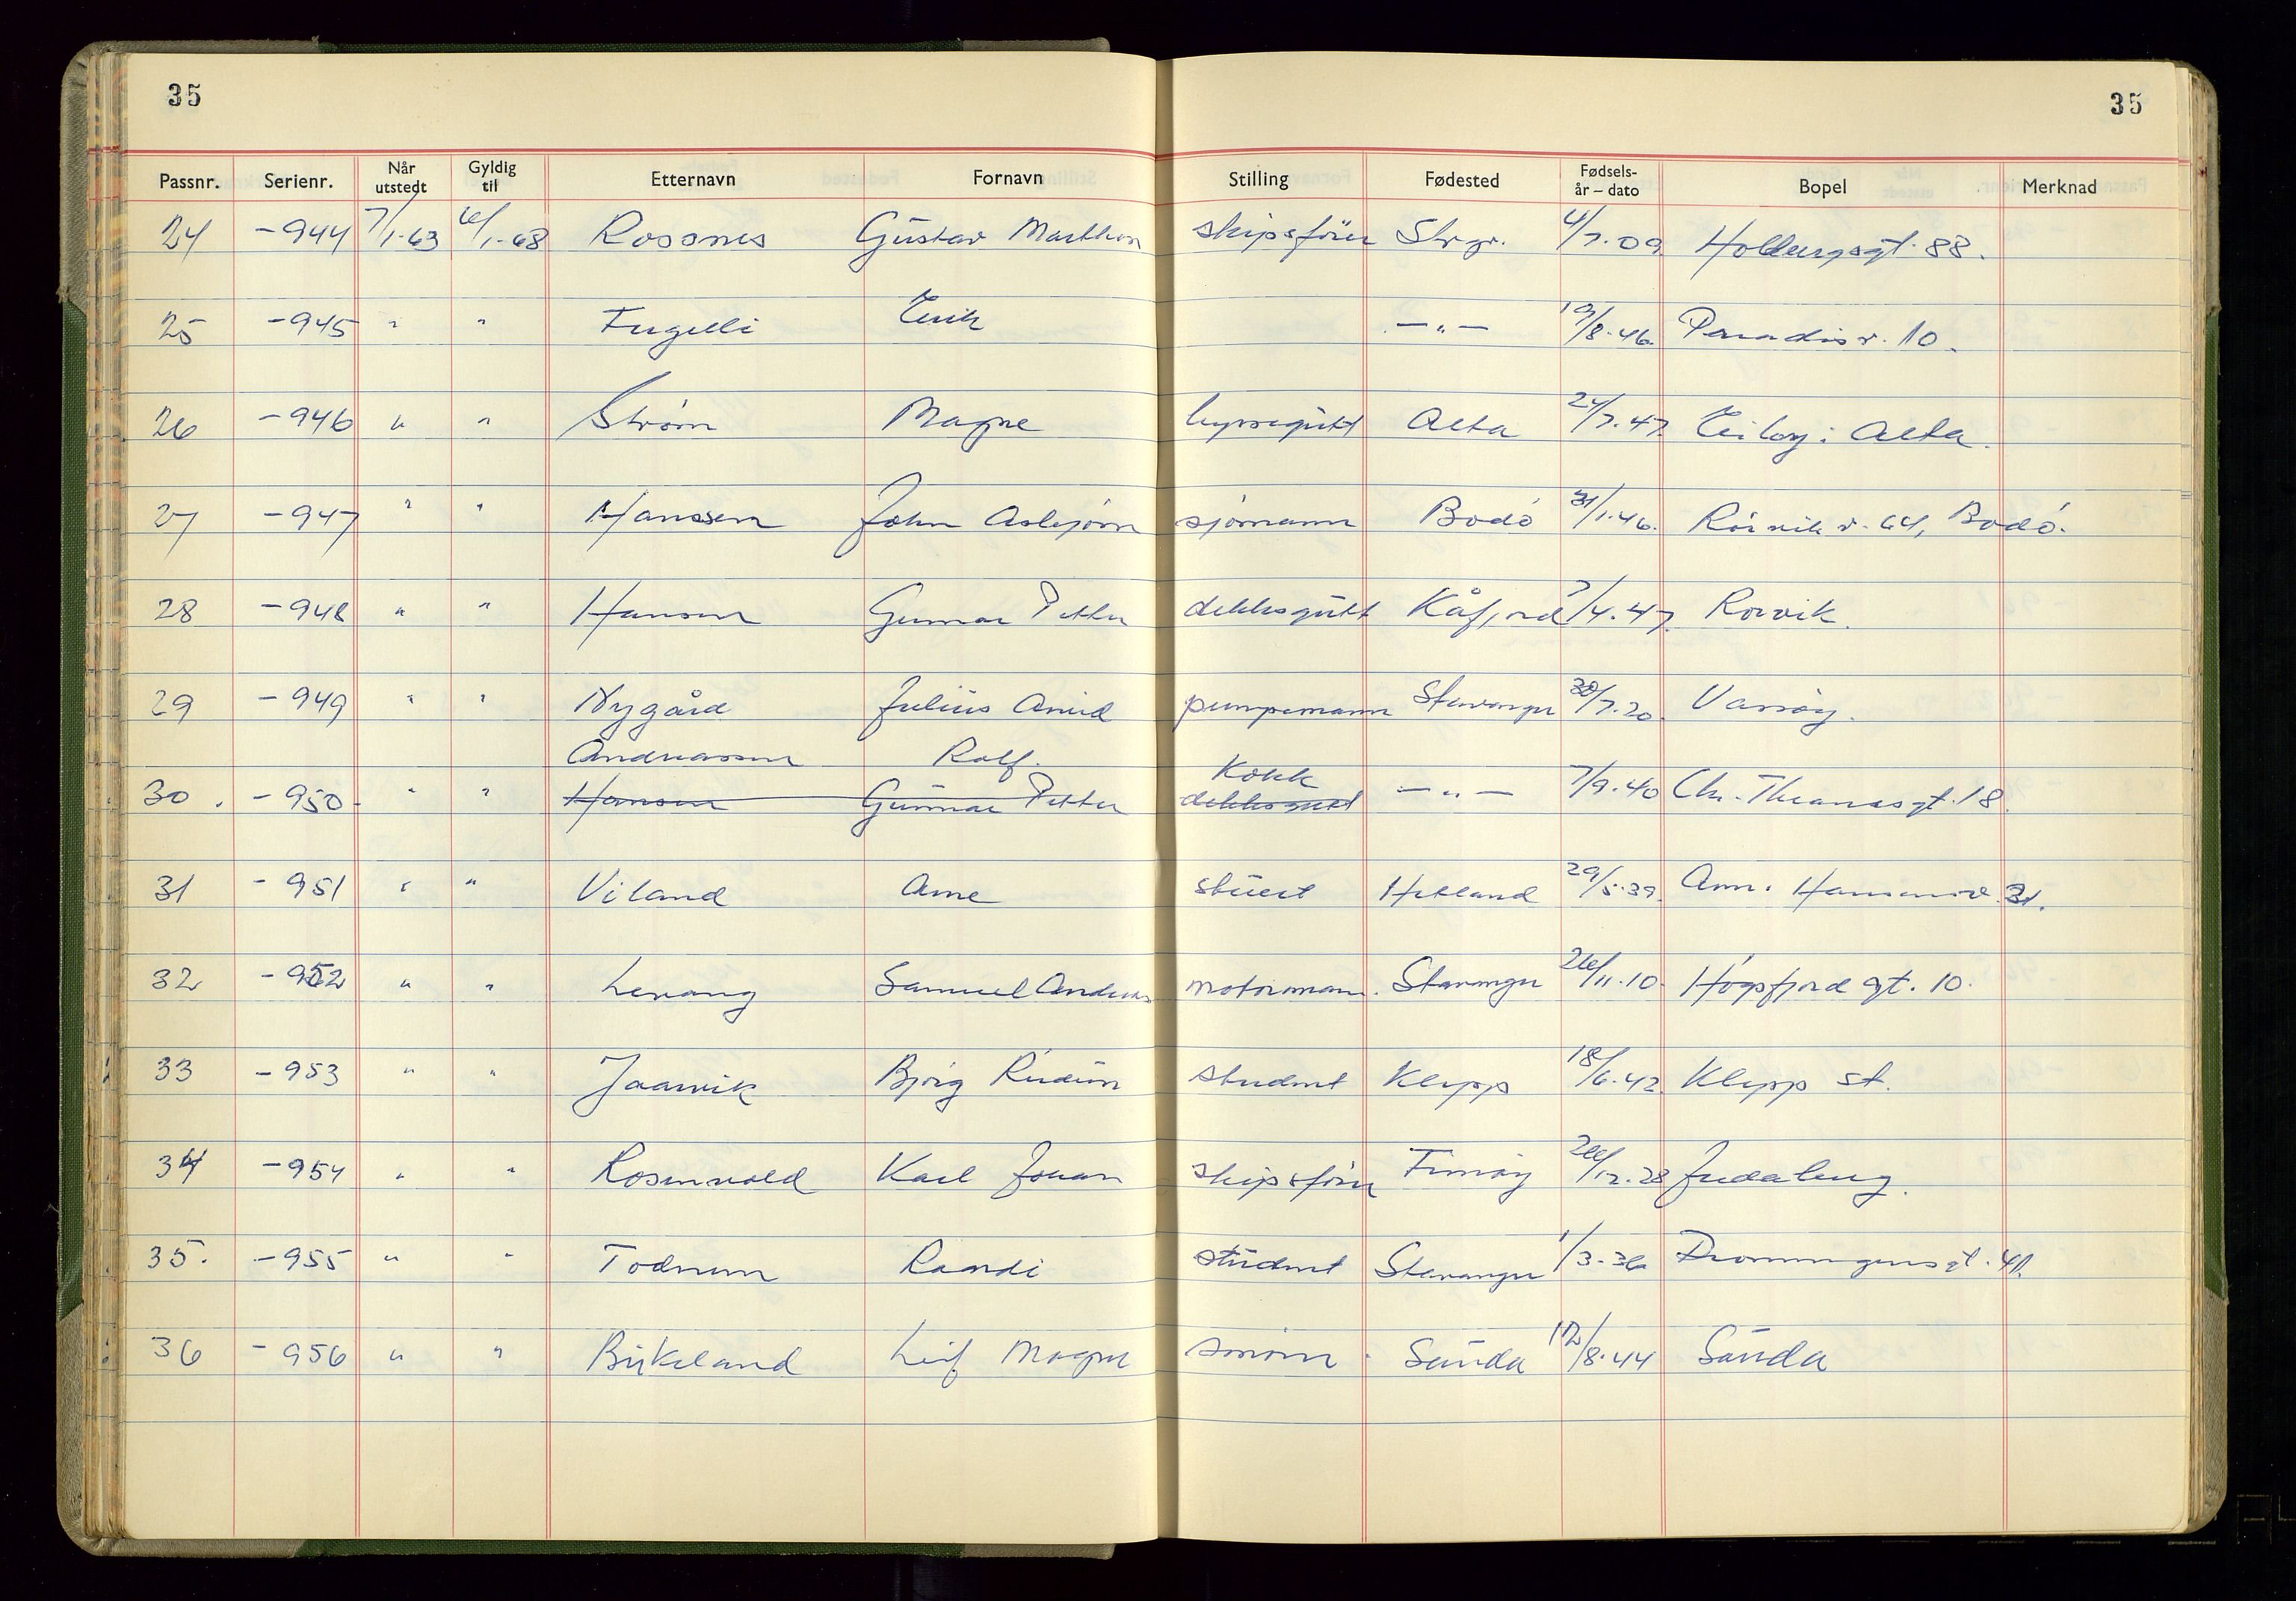 35 35
Passnr. Serienr. Når utstedt Gyldig til Etternavn Fornavn Stilling Fødested Fødsels- år – dato Bopel Merknad
24 -944 7/1.63 6/1.68 Rossnes Gustav skipsfører Stvgr. 4/7.09 Holbergsgt. 88.
25 -945 " " Fugelli Erik — " — 19/8.46 Paradisv. 10.
26 -946 " " Strøm Magne byssegutt Alta 24/7.47 Alta.
27 -947 " " Hanssen John Asbjørn sjømann Bodø 31/1.46. Rørvik v. 64, Bodø.
28 -948 " " Hansen Gunnar Petter dekksgutt Kåfjord 7/4.47. Rørvik.
29 -949 " " Nygård Julius Arvid pumpemann Stavanger 30/7.20.
Andreassen Rolf. Kokk
30. -950- " " Hansen Gunnar Petter dekksgutt — " — 7/9.40 Chr. Thranesgt. 18.
31 -951 " " Viland Arne stuert Hetland 29/5.39. Am. Hansensv. 31.
32 -952 " " Levang Samuel Andreas motormann. Stavanger 26/11.10. Høgsfjord gt. 10.
33 -953 " " Jaarvik Bjørg student Klepp 18/6.42. Klepp st.
34 -954 " " Rosenvold Karl Johan skipsfører Finnøy 26/12.28 Judaberg.
35. -955 " " Todnem Randi student Stavanger 1/3.36 Dronningensgt. 41.
36 -956 " " Birkeland Leif Magne smører. Sauda 12/8.44 Sauda